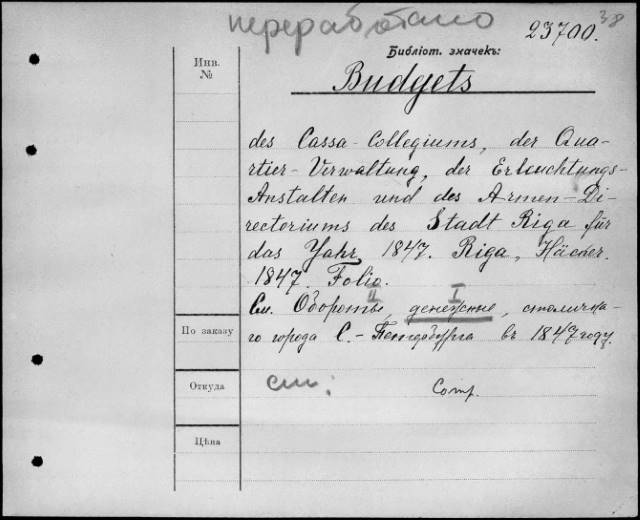 переработано
38
23700.
Библіот. значекъ:
Инв.
№
Budgets
des Cassa-Collegiums, der Qua-
rtier-Verwaltung, der Erleuchtungs-
Anstalten und des Armen-Di-
rectoriums des Stadt Riga für
das Jahr 1847. Riga, Häcker.
1847. Folio.
II I
См. Обороты, денежные, столична-
го города С.-Петербурга въ 1847 году.
По заказу
Откуда
см:
Comp.
Цѣна